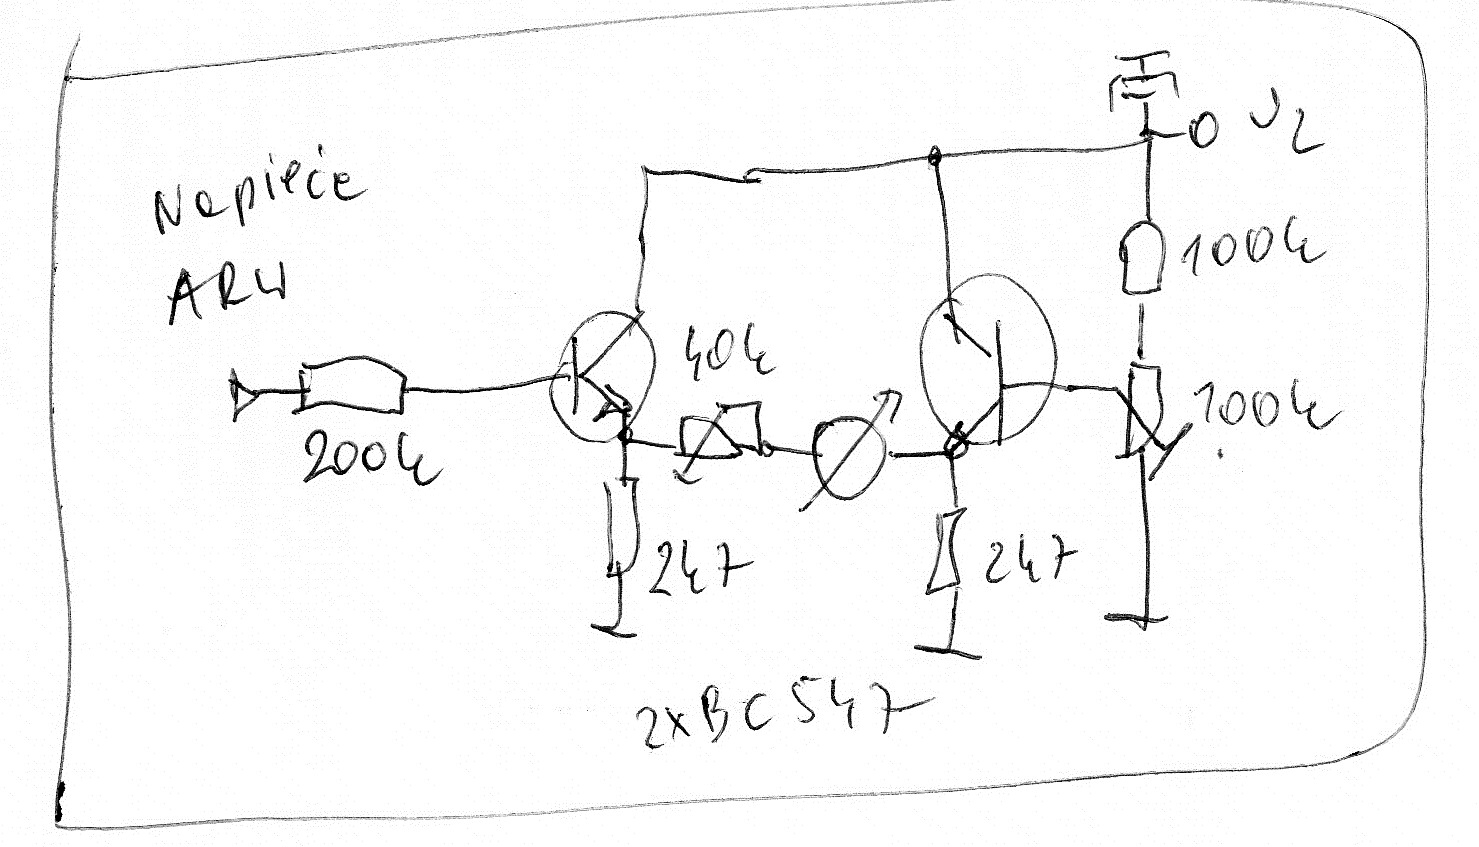 Napięcie
ARW
U2
100k
40k
100k
200k
2k7
2k7
2xBC547